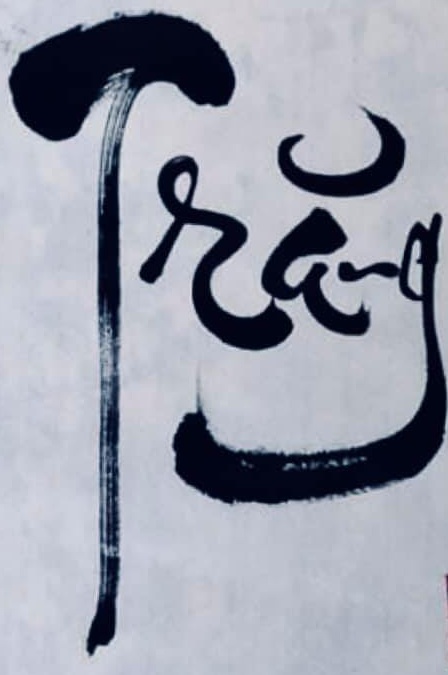 Trăng